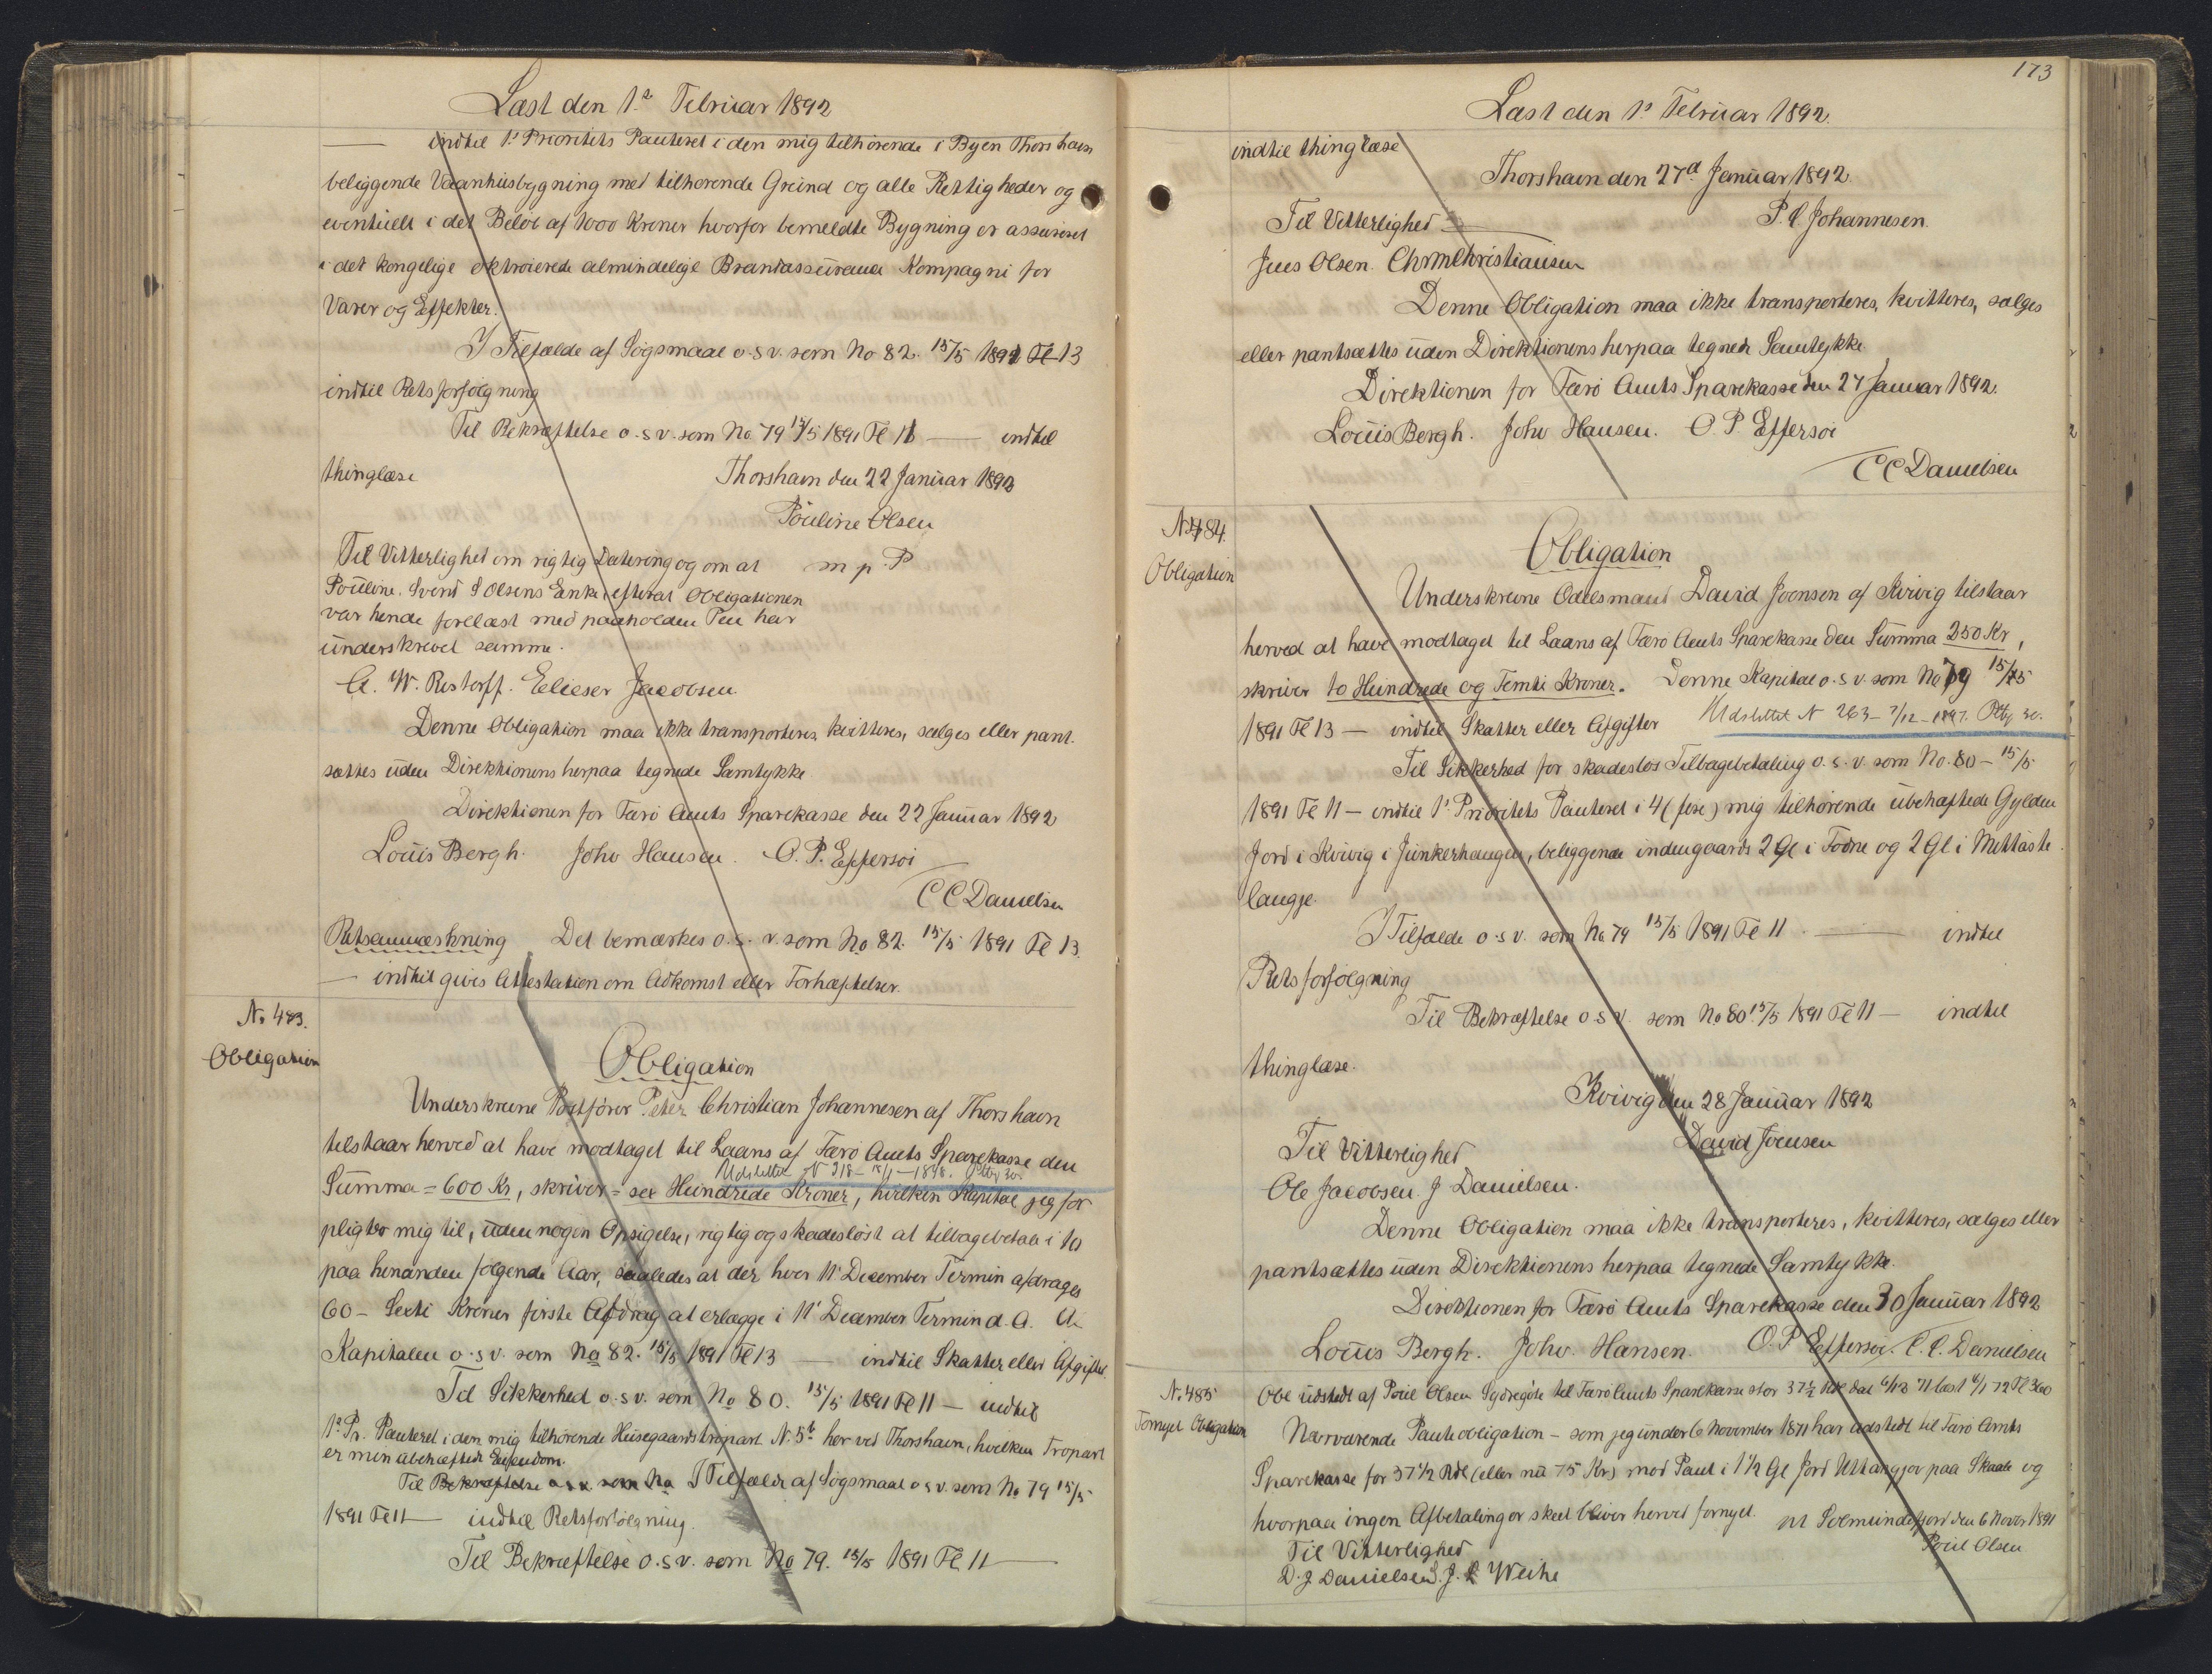 Læst den 1ᵃ Februar 1892
— indtil 1' Prioritets Panteret i den mig tilhørende i Byen Thorshavn
beliggende Vaanhusbygning med tilhørende Grund og alle Rettigheder og
eventuelt i det Beløb af 1000 Kroner hvorfor bemeldte Bygning er assureret
i det kongelige oktroierede almindelige Brandassurance Kompagni for
Varer og Effekter.
I Tilfælde af Søgsmaal o.s.v. som No 82. 15/5 1891 Fl 13
indtil Retsforfølgning
Til Bekræftelse o.s.v. som No 79 15/5 1891 Fl 11 — indtil
thinglæse
Thorshavn den 22 Januar 1892
Pouline Olsen
m p. P
Til Vitterlighed om rigtig Datering og om at
Pouline, Svend S Olsens Enke, efterat Obligationen
var hende forelæst med paaholden Pen har
underskrevet samme.
A. W. Restorff. Elieser Jacobsen
Denne Obligation maa ikke transporteres, kvitteres, sælges eller pant-
sættes uden Direktionens herpaa tegnede Samtykke
Direktionen for Færø Amts Sparekasse den 22 Januar 1892
Louis Bergh. Johv Hansen. O. P. Effersøe
C C Danielsen
Retsanmærkning Det bemærkes o.s.v. som No 82. 15/5 1891 Fl 13.
— indtil gives Attestation om Adkomst eller Forhæftelser.
No 483.
Obligation
Obligation
Underskrevne Postfører Peter Christian Johannesen af Thorshavn
tilstaar herved at have modtaget til Laans af Færø Amts Sparekasse den
Udslettet N 318 – 15/1 – 1898. Pttg. 30.
Summa = 600 Kr, skriver = sex Hundrede Kroner, hvilken Kapital jeg for
pligter mig til, uden nogen Opsigelse, rigtig og skadesløst at tilbagebetale i 10
paa hinanden følgende Aar, saaledes at der hver 11' December Termin afdrages
60 – Sexti Kroner første Afdrag at erlægge i 11' December Termin d. A. Af
Kapitalen o.s.v. som No 82. 15/5 1891 Fl 13 — indtil Skatter eller Afgifter
Til Sikkerhed o.s.v. som No 80. 15/5 1891 Fl 11 — indtil
1ᵉ Pr. Panteret i den mig tilhørende Husegaardstropart N. 5ᵇ her ved Thorshavn, hvilken Tropart
er min ubehæftede Eiendom.
Til Bekræftelse o.s.v. som No I Tilfælde af Søgsmaal o.s.v. som No 79 15/5
1891 Fl 11 — indtil Retsforfølgning.
Til Bekræftelse o.s.v. som No 79. 15/5 1891 Fl 11 —
173
Læst den 1' Februar 1892.
indtil thinglæse
Thorshavn den 27ᵈ Januar 1892.
P. C. Johannesen.
Til Vitterlighed
Jens Olsen. Chrm Christiansen
Denne Obligation maa ikke transporteres, kvitteres, sælges
eller pantsættes uden Direktionens herpaa tegnede Samtykke
Direktionen for Færø Amts Sparekasse den 27 Januar 1892.
Louis Bergh. Johv Hansen. O. P. Effersøe
C C Danielsen
No 484.
Obligation
Obligation
Underskrevne Odelsmand David Joensen af Kvivig tilstaar
herved at have modtaget til Laans af Færø Amts Sparekasse den Summa 250 Kr,
skriver to Hundrede og Femti Kroner. Denne Kapital o.s.v. som No 79 15/5
1891 Fl 13 — indtil Skatter eller Afgifter Udslettet N 263 – 7/12 – 1897. Pttg. 30.
Til Sikkerhed for skadesløs Tilbagebetaling o.s.v. som No. 80 – 15/5
1891 Fl 11 — indtil 1' Prioritets Panteret i 4 (fire) mig tilhørende ubehæftede Gylden
Jord i Kvivig i Junkerhaugen, beliggende indengaards 2 Gl i Todne og 2 Gl i Mittaste
laugje.
I Tilfælde o.s.v. som No 79 15/5 1891 Fl 11 — indtil
Retsforfølgning
Til Bekræftelse o.s.v. som No 80 15/5 1891 Fl 11 — indtil
thinglæse.
Kvivig den 28 Januar 1892
David Joensen
Til Vitterlighed
Ole Jacobsen. J Danielsen.
Denne Obligation maa ikke transporteres, kvitteres, sælges eller
pantsættes uden Direktionens herpaa tegnede Samtykke.
Direktionen for Færø Amts Sparekasse den 30 Januar 1892
Louis Bergh. Johv. Hansen. O. P Effersøe. C. C. Danielsen
No 485
Fornyet Obligation
Obl udstedt af Poul Olsen Sydregøte til Færø Amts Sparekasse stor 37½ Rdl dat 6/11 71 læst 4/1 72 Fl 360
Nærværende Panteobligation – som jeg under 6 November 1871 har udstedt til Færø Amts
Sparekasse for 37½ Rdl (eller nu 75 Kr) mod Pant i 1½ Gl Jord Uttangjov paa Skaale og
hvorpaa ingen Afbetaling er skeet bliver herved fornyet. pt Solmundefjord den 6 Novbr 1891
Poul Olsen
Til Vitterlighed
D. J Danielsen. J. P. Weihe